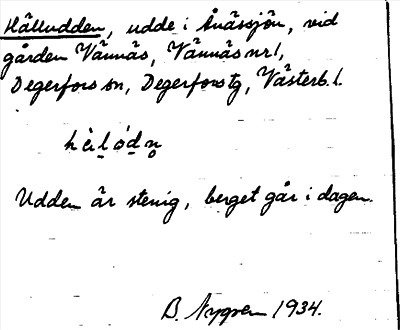 Hälludden, udde i Ånässjön, vid
gården Vännäs, Vännäs nr 1,
Degerfors sn, Degerfors tg, Västerb. l.
Udden är stenig, berget går i dagen.
B. Nygren 1934.